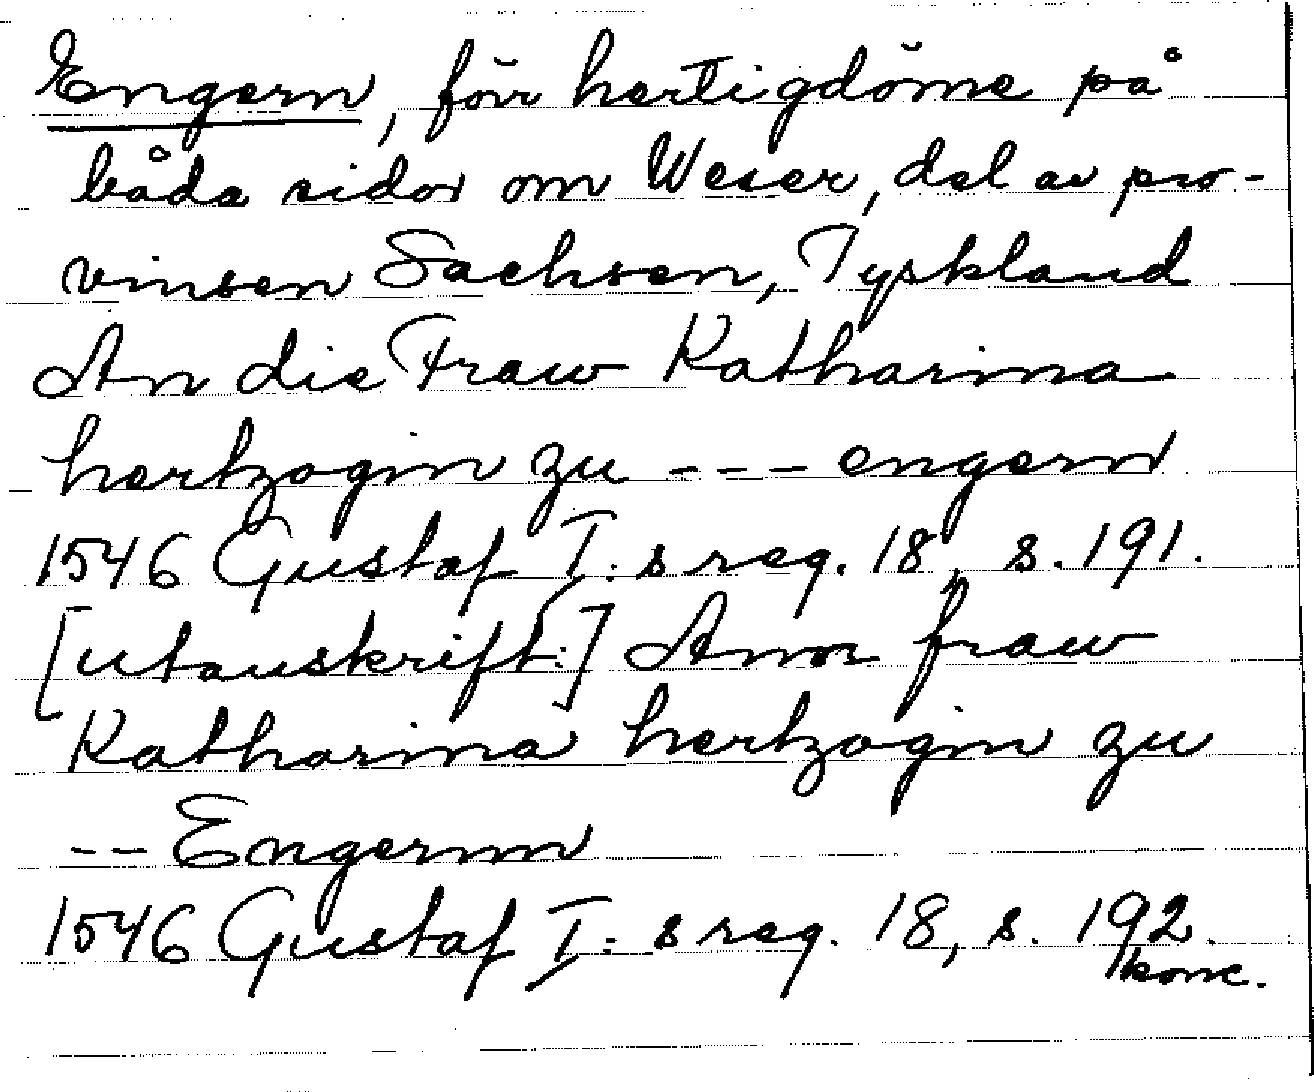 Engern, förr hertigdöme på
båda sidor om Weser, del av pro-
vinsen Sachsen, Tyskland
An die Fraw Katharina
hertzogin zu --- engern
1546 Gustaf I:s reg. 18, s. 191.
[utanskrift:] Ann fraw
Katharina hertzogin zu
-- Engernn
1546 Gustaf I:s reg. 18, s. 192.
konc.